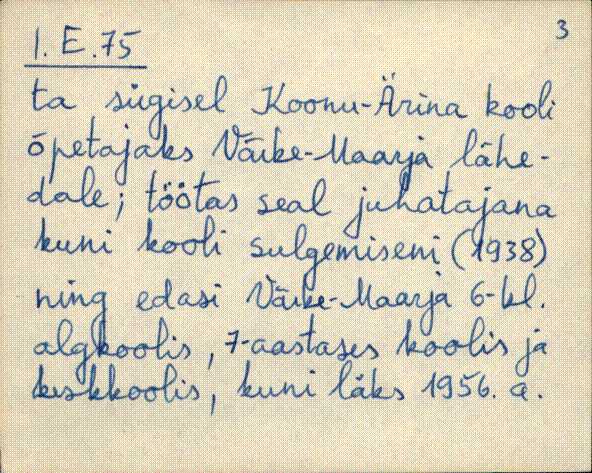 3
I.E.75
ta sügisel Koonu-Ärina kooli
õpetajaks Väike-Maarja lähe-
dale; töötas seal juhatajana
kuni kooli sulgemiseni (1938)
ning edasi Väike-Maarja 6-kl.
algkoolis, 7-aastases koolis ja
keskkoolis, kuni läks 1956. a.